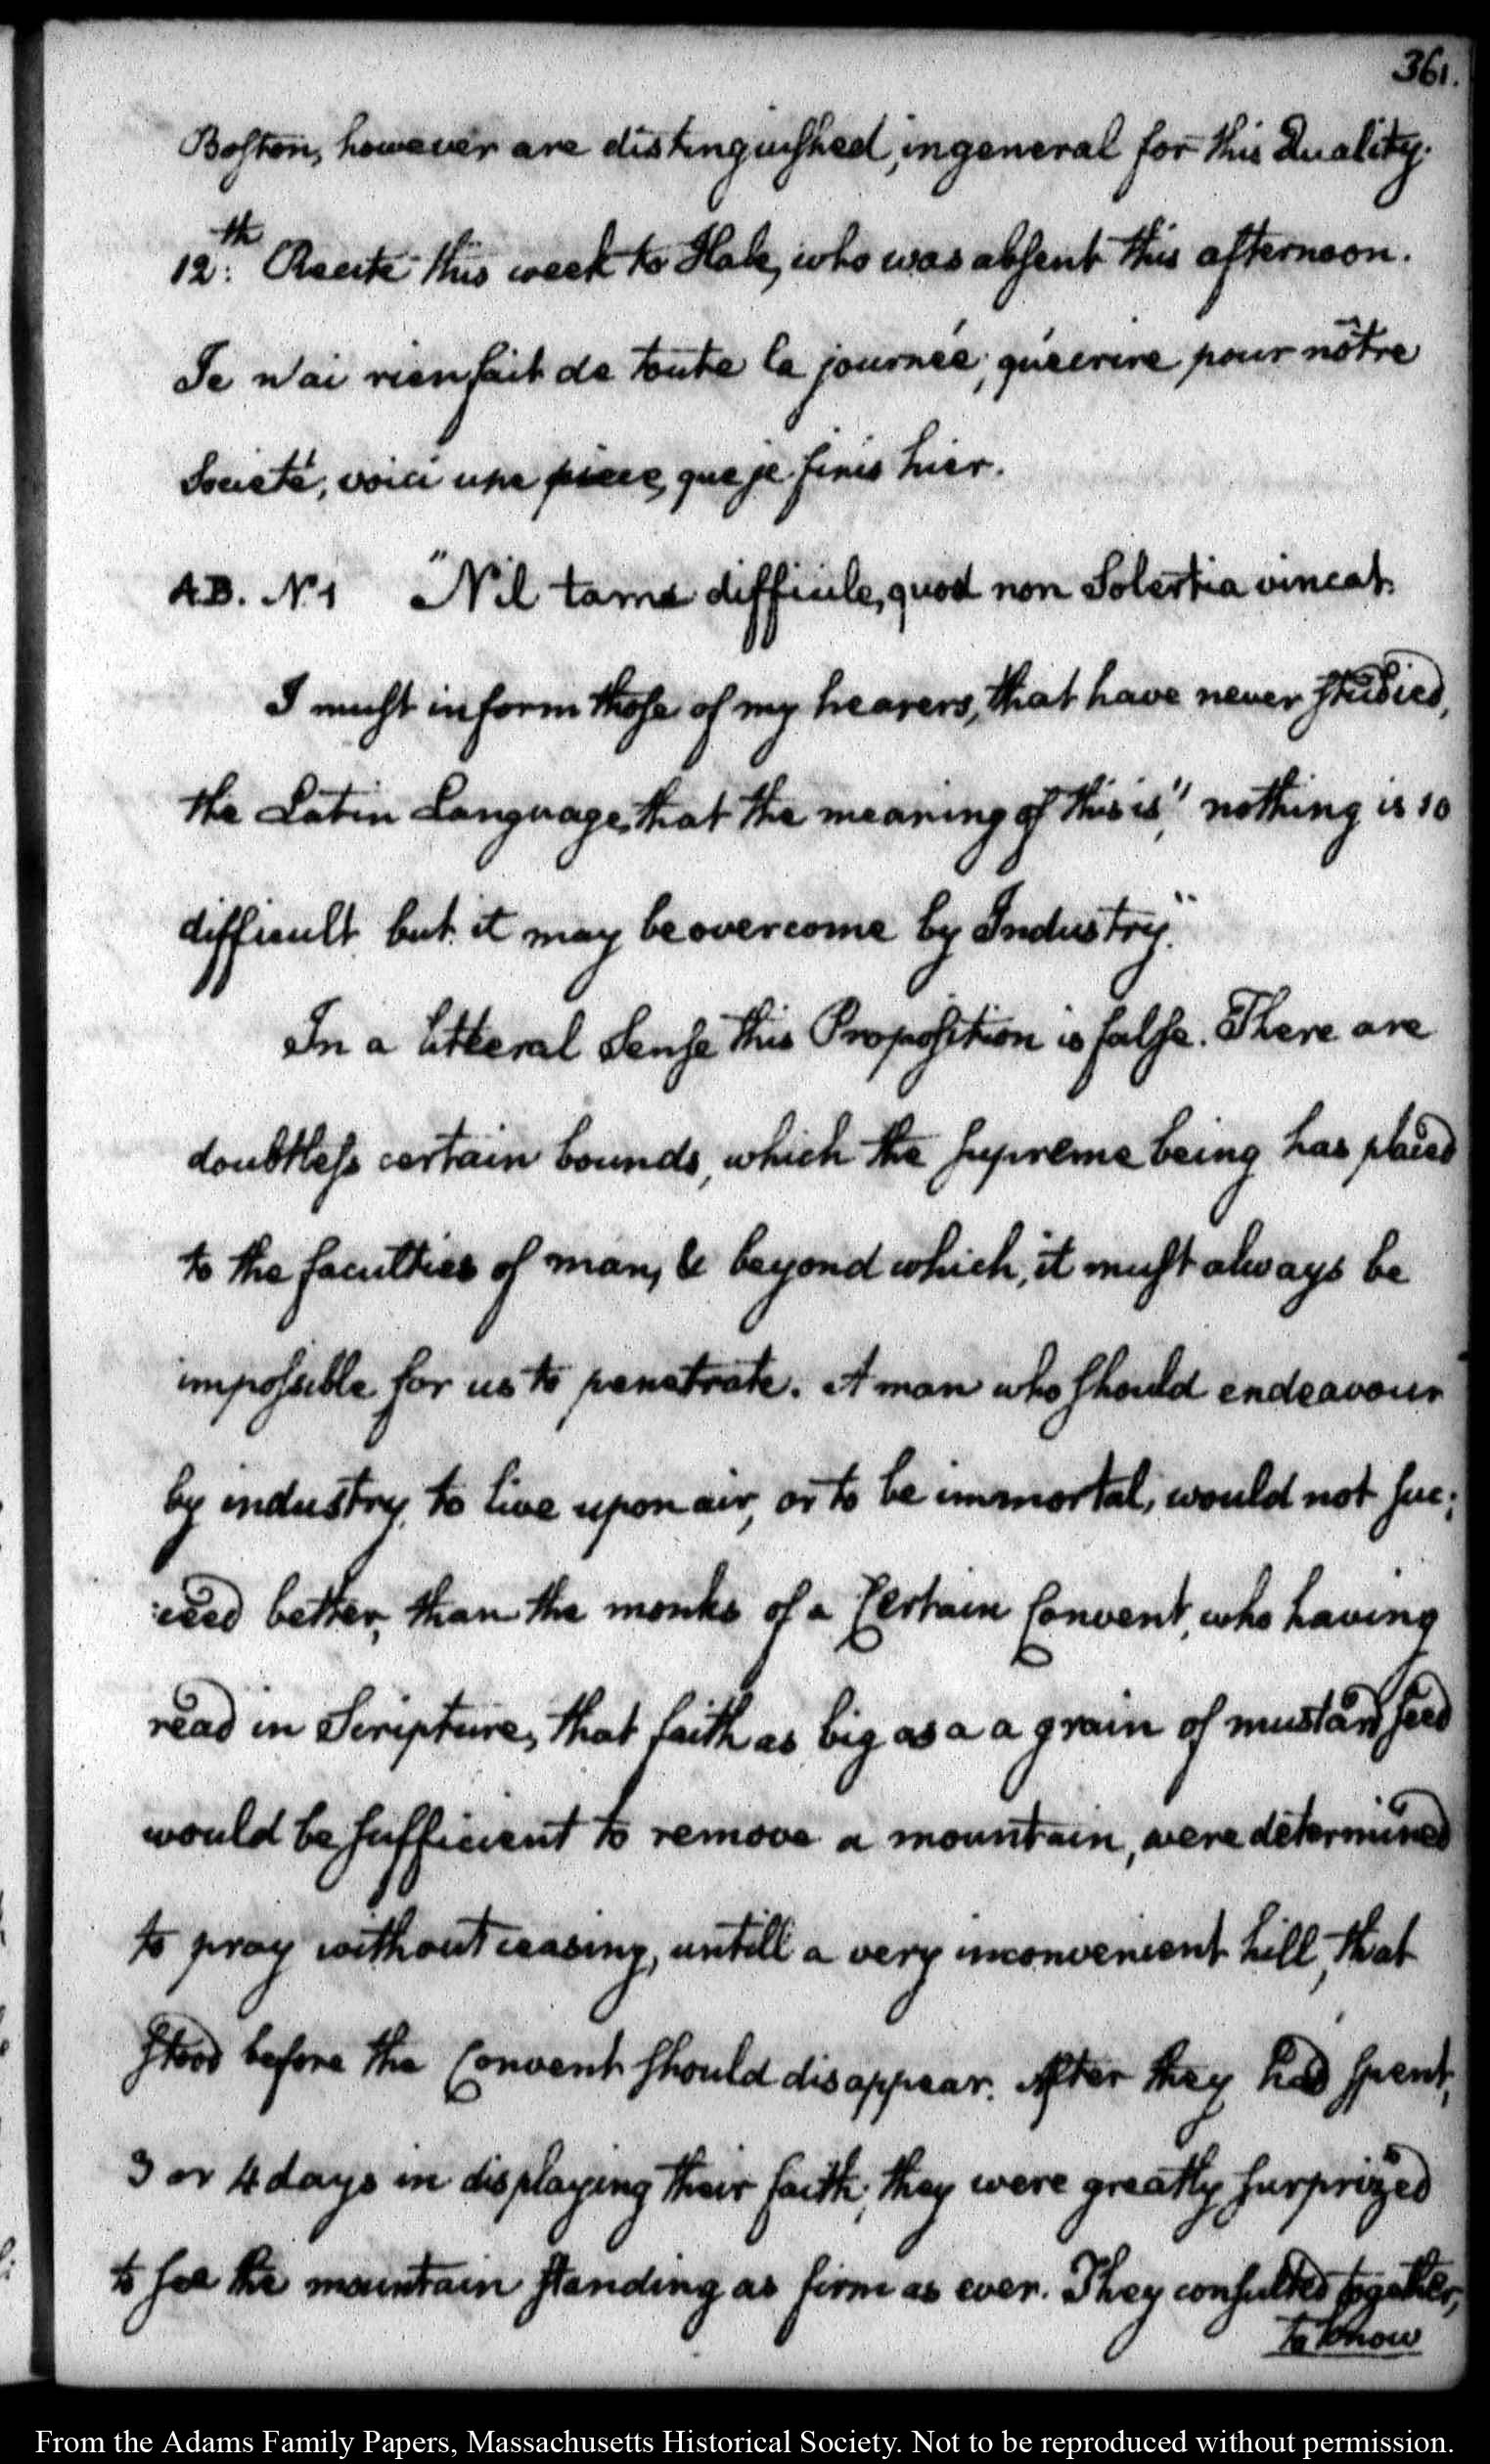 361.
Boston, however are distinguished, in general for this Quality.
12.th Recite this week to Hale, who was absent this afternoon.
Je n'ai rien fait de toute la journée, qu'ecrire pour nôtre
Societé, voici une piece, que je finis hier.
A.B. N.1 "Nil tam difficile, quod non Solertia vincat.
I must inform those of my hearers, that have never studied,
the Latin Language, that the meaning of this is, "nothing is so
difficult but it may be overcome by Industry."
In a litteral Sense this Proposition is false. There are
doubtless certain bounds, which the supreme being has placed
to the faculties of man, & beyond which, it must always be
impossible for us to penetrate. A man who should endeavour
by industry, to live upon air, or to be immortal, would not suc:
:ceed better, than the monks of a Certain Convent, who having
read in Scripture, that faith as big as a a grain of mustard seed
would be sufficient to remove a mountain, were determined
to pray without ceasing, untill a very inconvenient hill, that
stood before the Convent should disappear. After they had spent,
3 or 4 days in displaying their faith, they were greatly surprized
to see the mountain standing as firm as ever. They consulted together,
to know
From the Adams Family Papers, Massachusetts Historical Society. Not to be reproduced without permission.